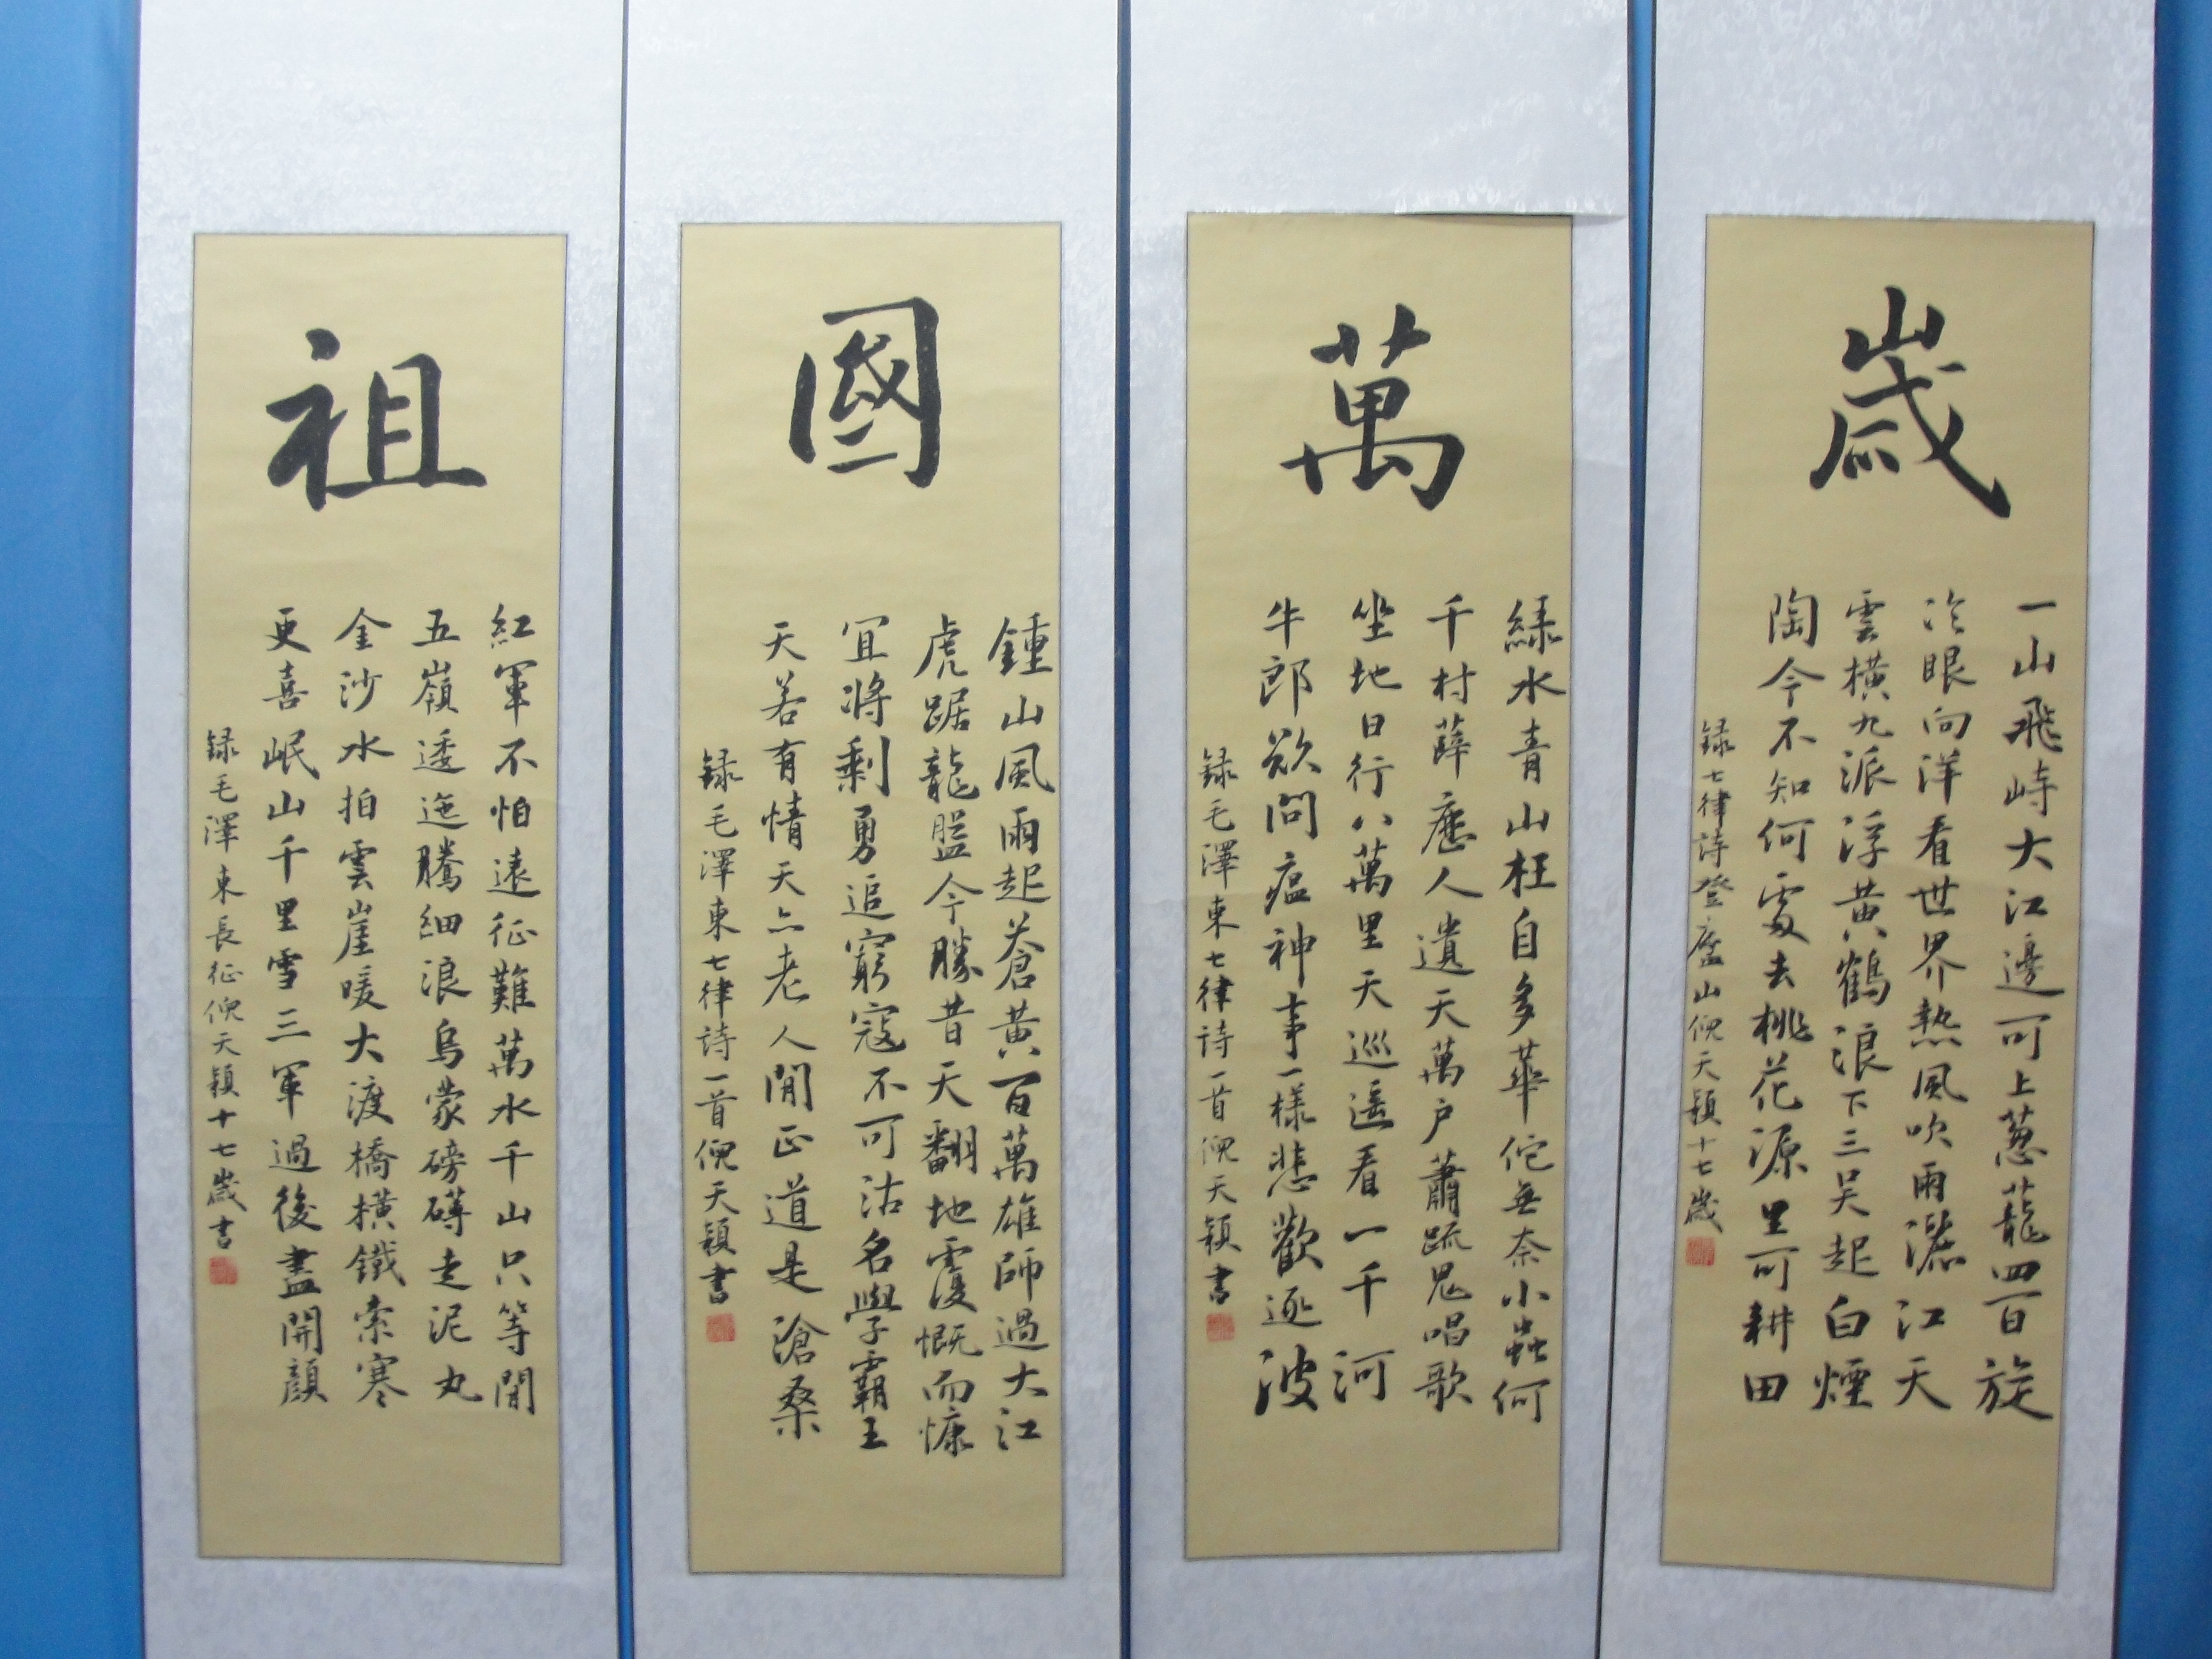 祖
紅軍不怕遠征難萬水千山只等閒
五嶺逶迤騰細浪烏蒙磅礴走泥丸
金沙水拍雲崖暖大渡橋橫鐵索寒
更喜岷山千里雪三軍過後盡開顏
録毛澤東長征倪天穎十七歲書
國
鍾山風雨起蒼黃百萬雄師過大江
虎踞龍盤今勝昔天翻地覆慨而慷
宜將剩勇追窮寇不可沽名學霸王
天若有情天亦老人間正道是滄桑
録毛澤東七律詩一首倪天穎書
萬
綠水青山枉自多華佗無奈小蟲何
千村薜荔人遺矢萬户蕭疏鬼唱歌
坐地日行八萬里天巡遥看一千河
牛郎欲問瘟神事一樣悲歡逐波
録毛澤東七律詩一首倪天穎書
歲
一山飛峙大江邊可上葱蘢四百旋
冷眼向洋看世界熱風吹雨灑江天
雲橫九派浮黃鶴浪下三吴起白煙
陶令不知何處去桃花源里可耕田
録七律詩登廬山倪天穎十七歲